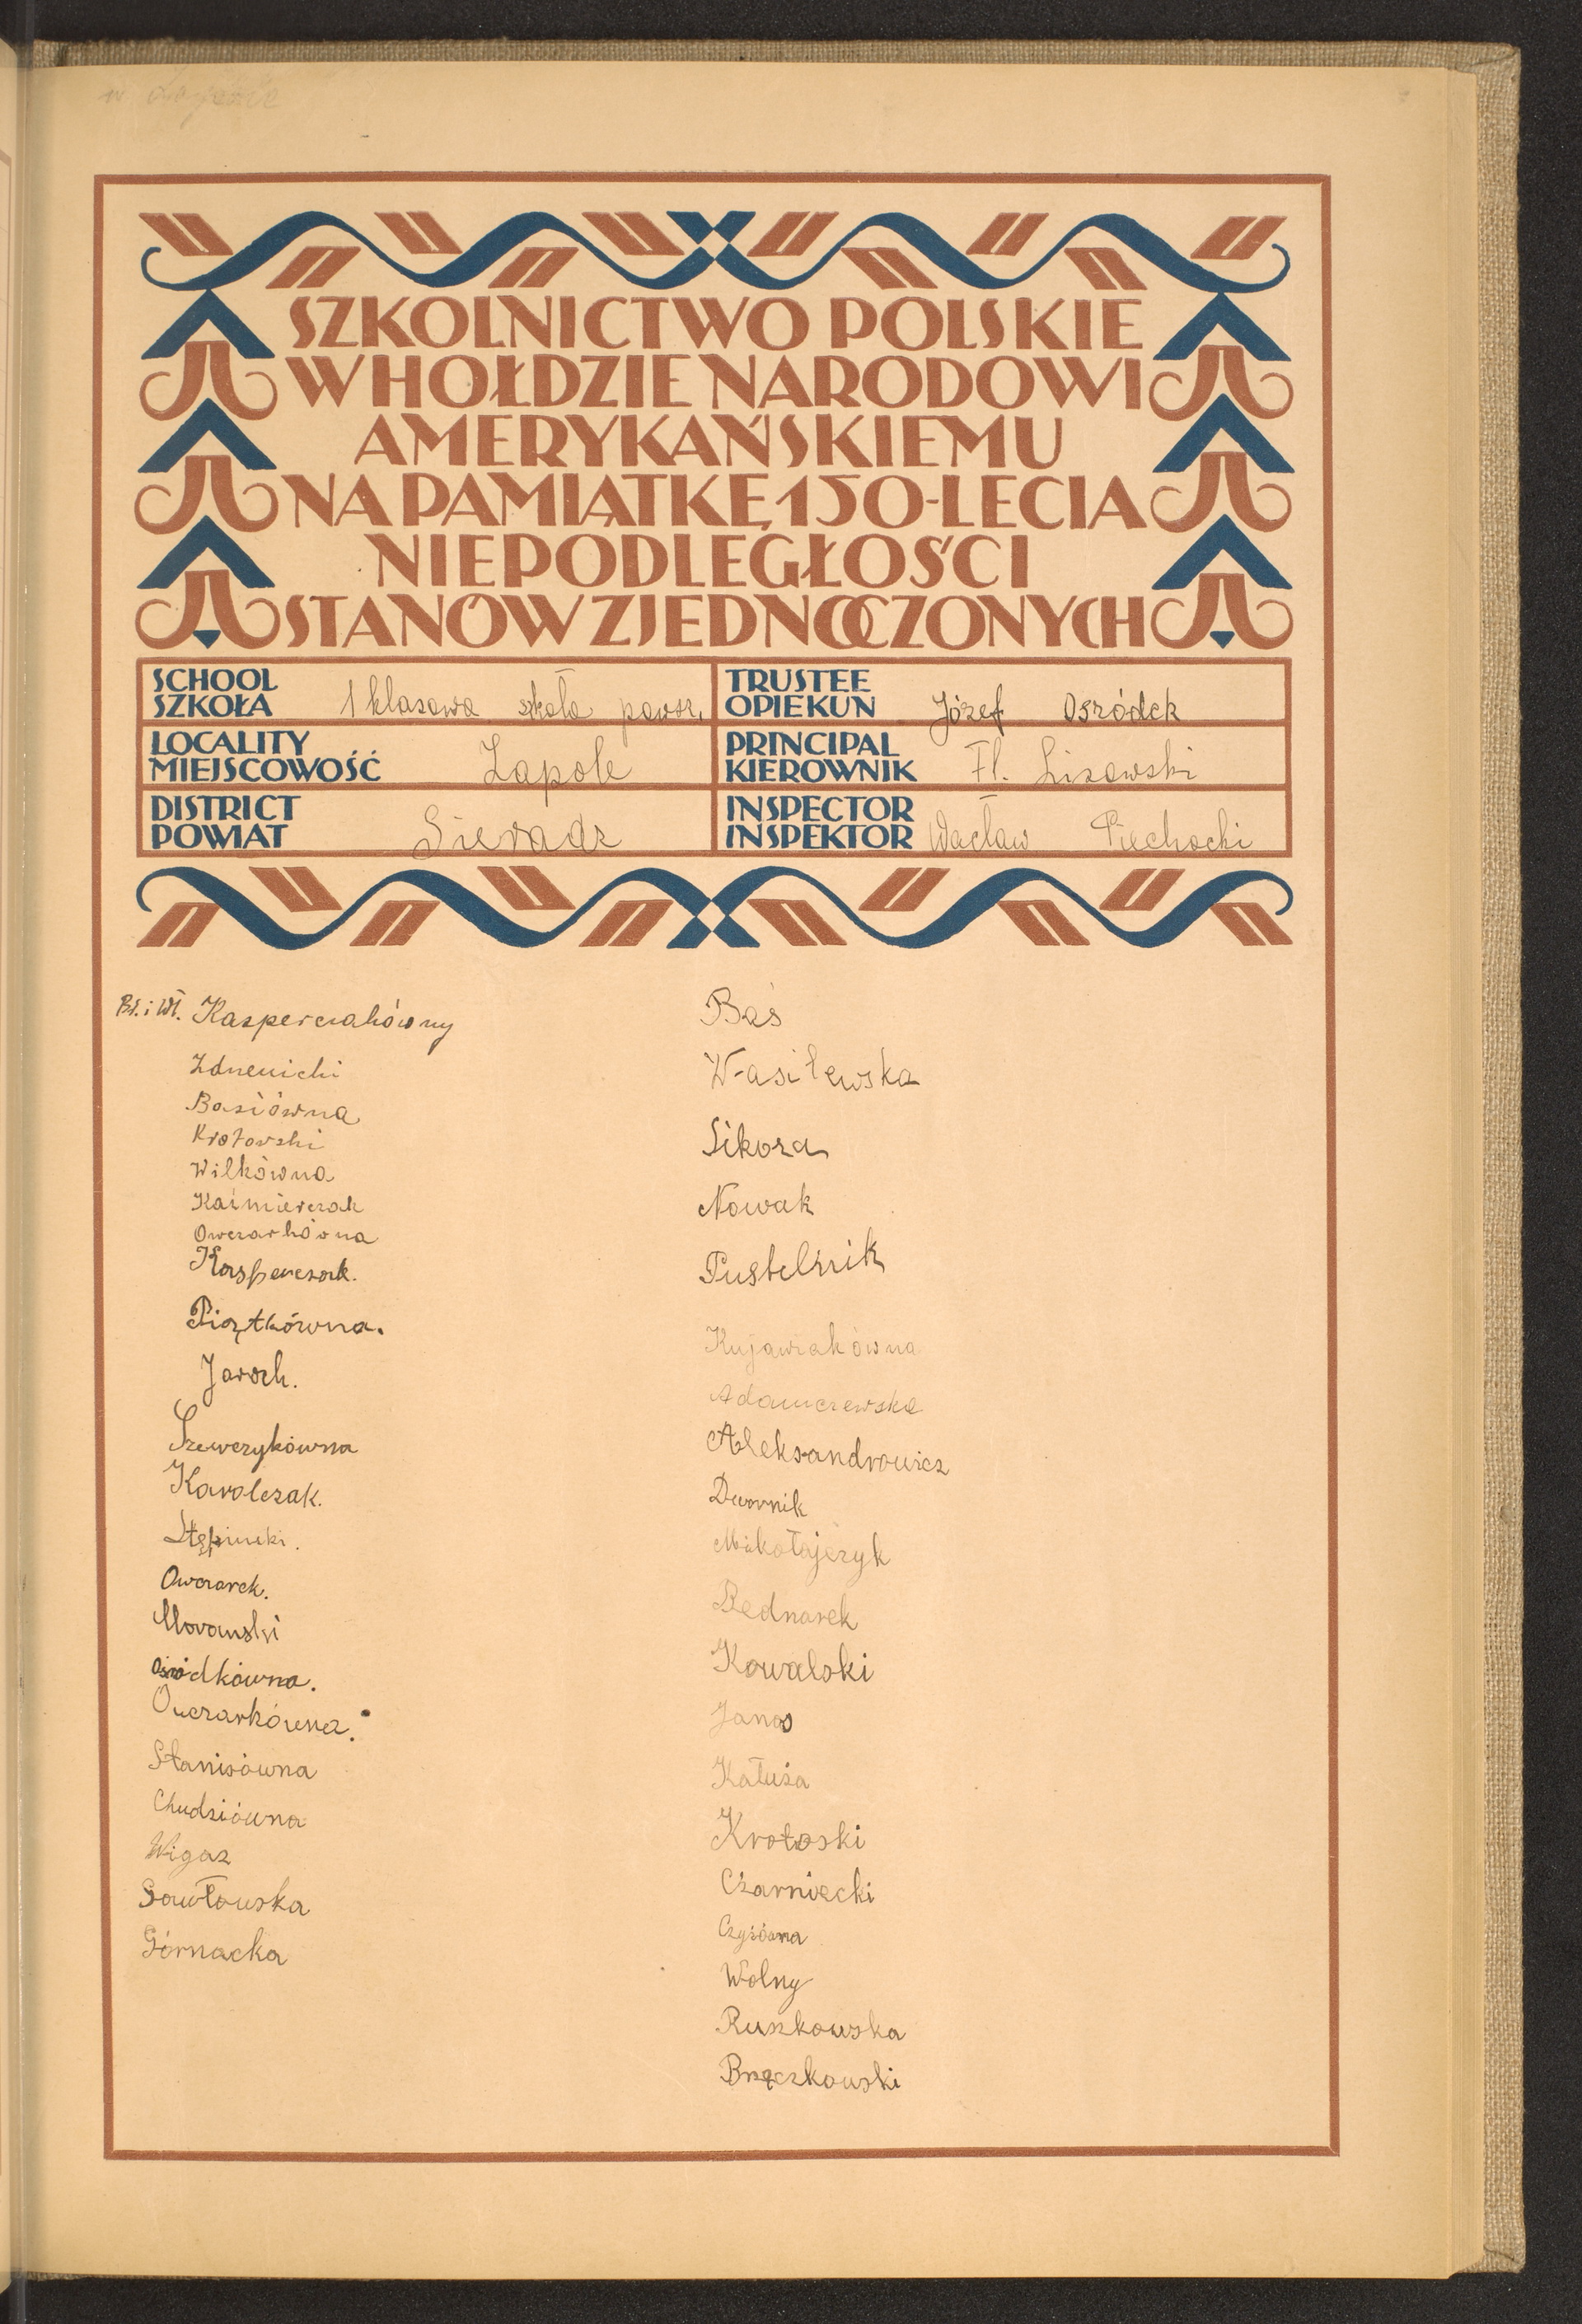 SZKOLNICTWO POLSKIE
W HOŁDZIE NARODOWI
AMERYKAŃSKIEMU
NA PAMIĄTKĘ 150-LECIA
NIEPODLEGŁOŚCI
STANÓW ZJEDNOCZONYCH
SCHOOL
SZKOŁA 1 klasowa szkoła powsz.
TRUSTEE
OPIEKUN Józef Ośródek
LOCALITY
MIEJSCOWOŚĆ Zapole
PRINCIPAL
KIEROWNIK Fl. Lisowski
DISTRICT
POWIAT Sieradz
INSPECTOR
INSPEKTOR Wacław Piechocki
Br. i Wł. Kasperczakówny
Zdunicki
Basiówna
Krotowski
Wilkówna
Kaźmierczak
Owczarkówna
Kasperczak.
Piątkówna.
Jaroch.
Szewczykówna
Karolczak.
Stępiński.
Owczarek.
Morawski
Ośródkówna.
Owczarkówna.
Stanisówna
Chudziówna
Wigaz
Sawłowska
Górnacka
Baś
Wasilewska
Sikora
Nowak
Pustelnik
Kujawiakówna
Adamczewska
Aleksandrowicz
Dwornik
Mikołajczyk
Bednarek
Kowalski
Janas
Kałuża
Krotoski
Czarniecki
Czyżówna
Wolny
Ruszkowska
Brączkowski